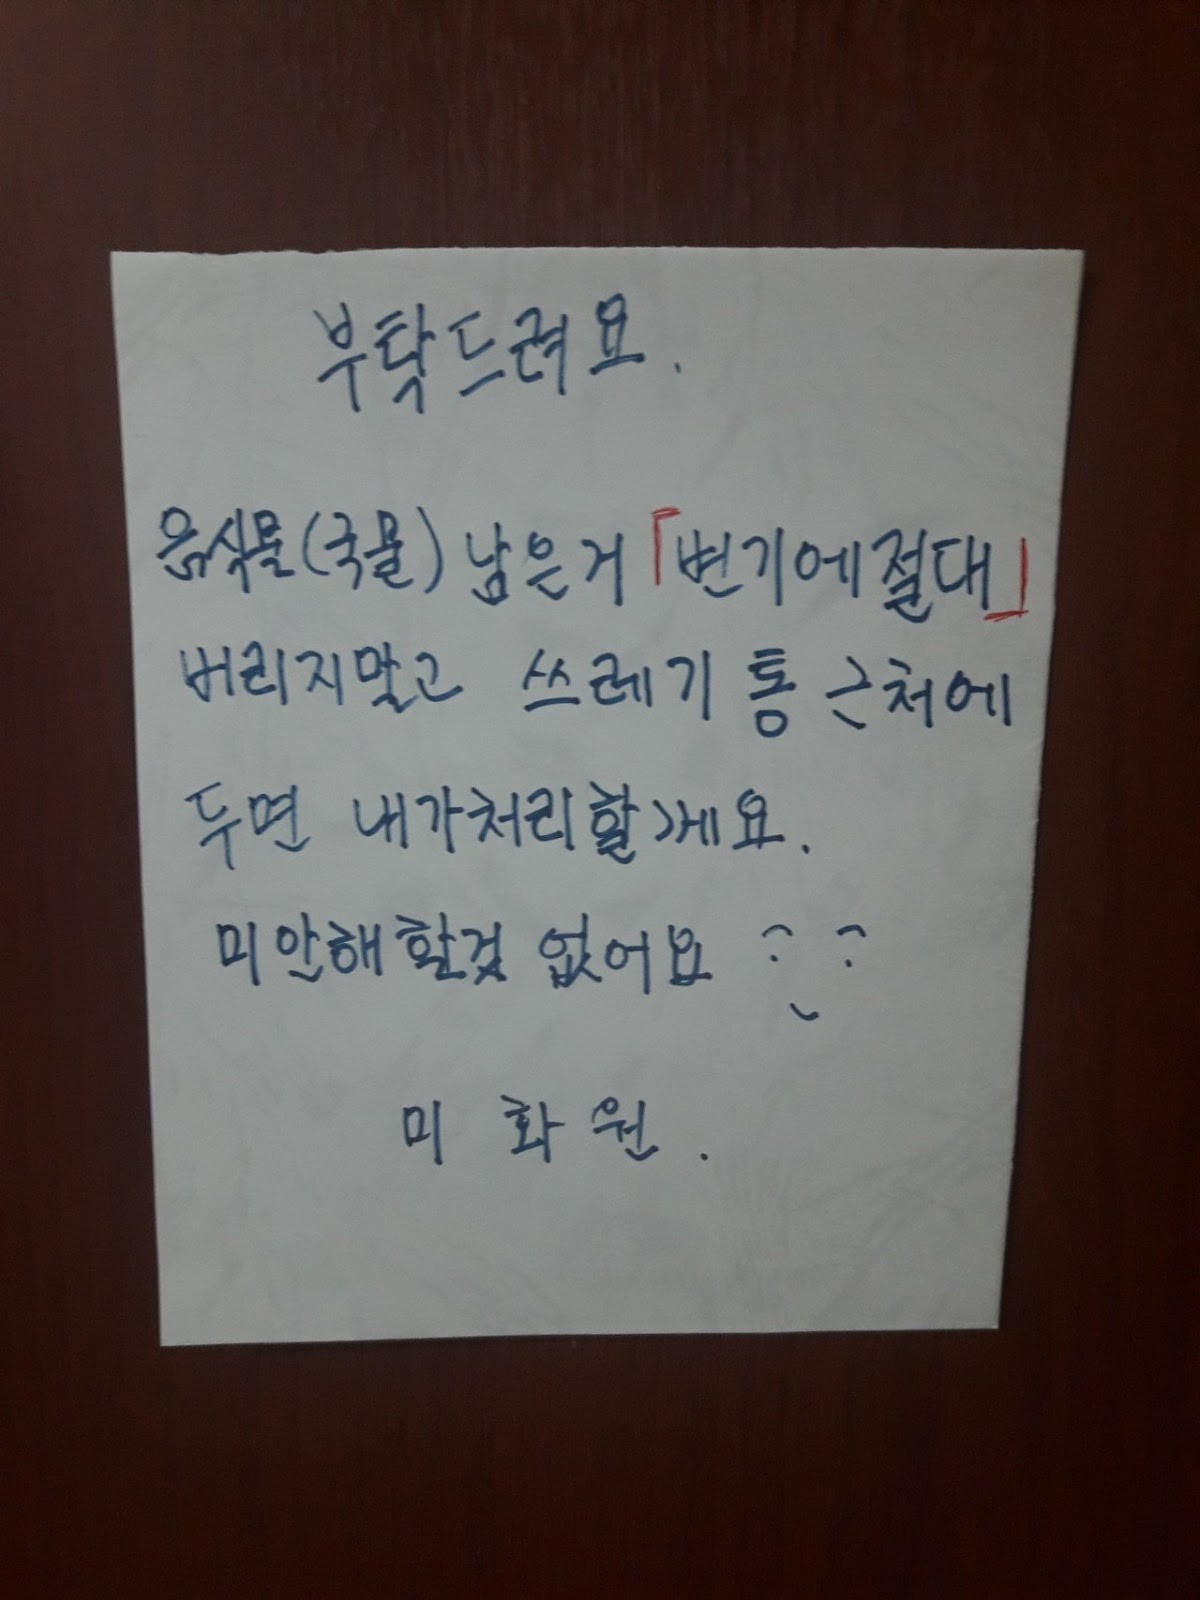 부탁드려요.
음식물(국물) 남은거 「변기에절대」
버리지말고 쓰레기 통 근처에
두면 내가처리할게요.
미안해할것 없어요
미 화 원 .